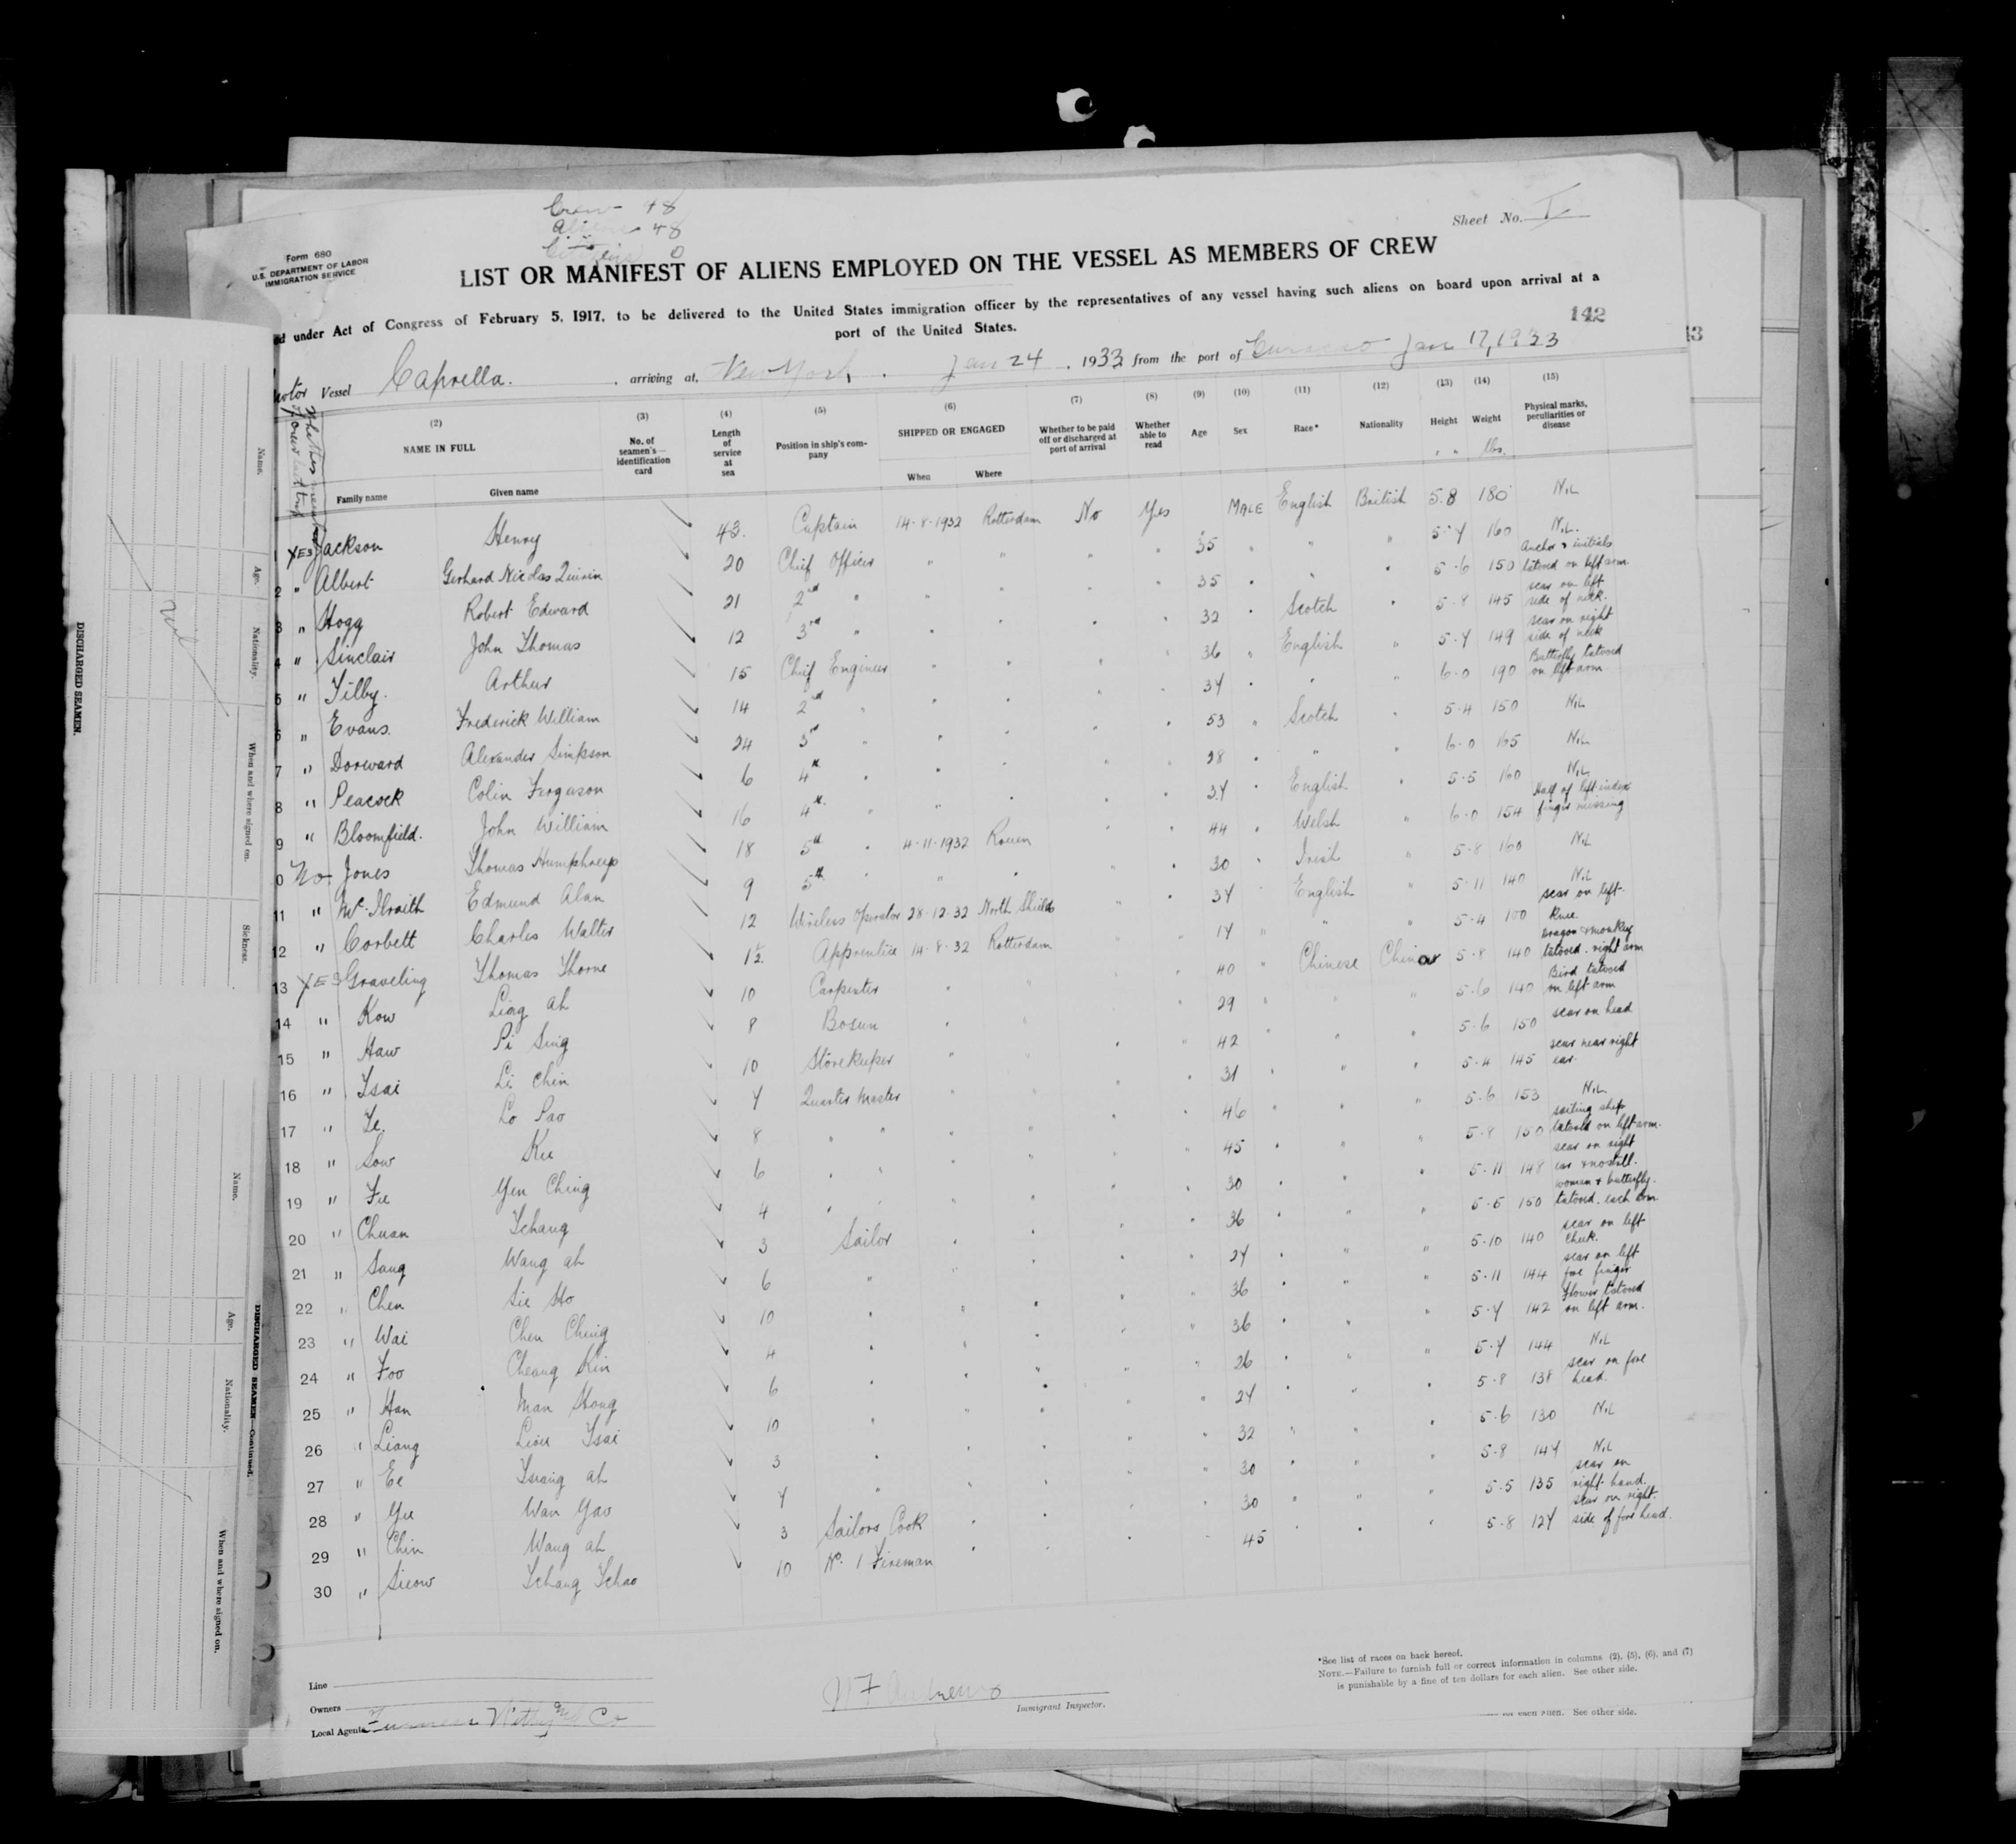 Crew 48
Aliens 48
Citizens 0
Sheet No. I
Form 680
U.S. DEPARTMENT OF LABOR
IMMIGRATION SERVICE
LIST OR MANIFEST OF ALIENS EMPLOYED ON THE VESSEL AS MEMBERS OF CREW
ed under Act of Congress of February 5, 1917, to be delivered to the United States immigration officer by the representatives of any vessel having such aliens on board upon arrival at a
port of the United States.
142
13
Vessel Caprella. , arriving at New York, Jan 24, 1933 from the port of Curacao Jan 17, 1933
(2) (3) (4) (5) (6) (7) (8) (9) (10) (11) (12) (13) (14) (15)
NAME IN FULL
Family name Given name
No. of seamen's identification card
Length of service at sea
Position in ship's company
SHIPPED OR ENGAGED
When Where
Whether to be paid off or discharged at port of arrival
Whether able to read
Age
Sex
Race*
Nationality
Height
Weight lbs.
Physical marks, peculiarities or disease
1 YES Jackson Henry 43. Captain 14-8-1932 Rotterdam No Yes MALE English British 5.8 180 NIL
2 " Albert Gerhard Nicolas Quirin 20 Chief Officer " " " " 35 " " " 5-7 160 NIL.
3 " Hogg Robert Edward 21 2nd " " " " " 35 " " " 5-6 150 Anchor & initials tatooed on left arm.
4 " Sinclair John Thomas 12 3rd " " " " " 32 " Scotch " 5-8 145 scar on left side of neck.
5 " Tilby. Arthur 15 Chief Engineer " " " " 36 " English " 5-7 149 scar on right side of neck
6 " Evans. Frederick William 14 2nd " " " " " 37 " " " 6-0 190 Butterfly tatooed on left arm
7 " Dorward Alexander Simpson 24 3rd " " " " " 53 " Scotch " 5-4 150 NIL
8 " Peacock Colin Ferguson 6 4th " " " " " 28 " " " 6-0 165 NIL
9 " Bloomfield. John William 16 4th " " " " " 37 " English " 5-5 160 NIL
10 No Jones Thomas Humphreys 18 5th " 4-11-1932 Rouen " " 44 " Welsh " 6-0 154 Half of left index finger missing
11 " McIlraith Edmund Alan 9 5th " " " " " 30 " Irish " 5-8 160 NIL
12 " Corbett Charles Walter 12 Wireless Operator 28-12-32 North Shields " " 37 " English " 5-11 140 NIL
13 YES Graveling Thomas Thorne 1½ Apprentice 14-8-32 Rotterdam " " 17 " " " 5-4 100 scar on left knee
14 " Kow Liang ah 10 Carpenter " " " " 40 " Chinese China 5-8 140 Dragon & monkey tatooed. right arm
15 " Haw Pi Sing 8 Bosun " " " " 29 " " " 5-6 140 Bird tatooed on left arm
16 " Tsai Li Chin 10 Storekeeper " " " " 42 " " " 5-6 150 scar on head
17 " Ze. Lo Pao 7 Quarter Master " " " " 31 " " " 5-4 145 scar near right ear.
18 " Sow Kee 8 " " " " " " 46 " " " 5-6 153 NIL
19 " Fee Yen Ching 6 " " " " " " 45 " " " 5-8 150 sailing ship tatooed on left arm.
20 " Chuan Tchang 4 " " " " " " 30 " " " 5-11 148 scar on right ear & nostril.
21 " Sang Wang ah 3 Sailor " " " " 36 " " " 5-5 150 woman & butterfly. tatooed. each arm
22 " Chen Sie Ho 6 " " " " " 27 " " " 5-10 140 scar on left cheek.
23 " Wai Chen Ching 10 " " " " " 36 " " " 5-11 144 scar on left fore finger
24 " Foo Cheang Kin 4 " " " " " 36 " " " 5-7 142 Flower tatooed on left arm.
25 " Han Man Hong 6 " " " " " 26 " " " 5-7 144 NIL
26 " Liang Liou Tsai 10 " " " " " 27 " " " 5-8 138 scar on fore head.
27 " Ee Tsiang ah 3 " " " " " 32 " " " 5-6 130 NIL
28 " Yee Wan Yao 7 " " " " " 30 " " " 5-8 147 NIL
29 " Chin Wang ah 3 Sailors Cook " " " " 30 " " " 5-5 135 scar on right hand.
30 " Sieow Tchang Tchao 10 No. 1 Fireman " " " " 45 " " " 5-8 127 scar on right side of fore head.
Line
Owners
Local Agents Furness Withy and Co
Immigrant Inspector.
*See list of races on back hereof.
NOTE.—Failure to furnish full or correct information in columns (2), (5), (6), and (7)
is punishable by a fine of ten dollars for each alien. See other side.
See other side.
DISCHARGED SEAMEN.
Name. Age. Nationality. When and where signed on. Sickness.
Nil
DISCHARGED SEAMEN—Continued.
Name. Age. Nationality. When and where signed on.